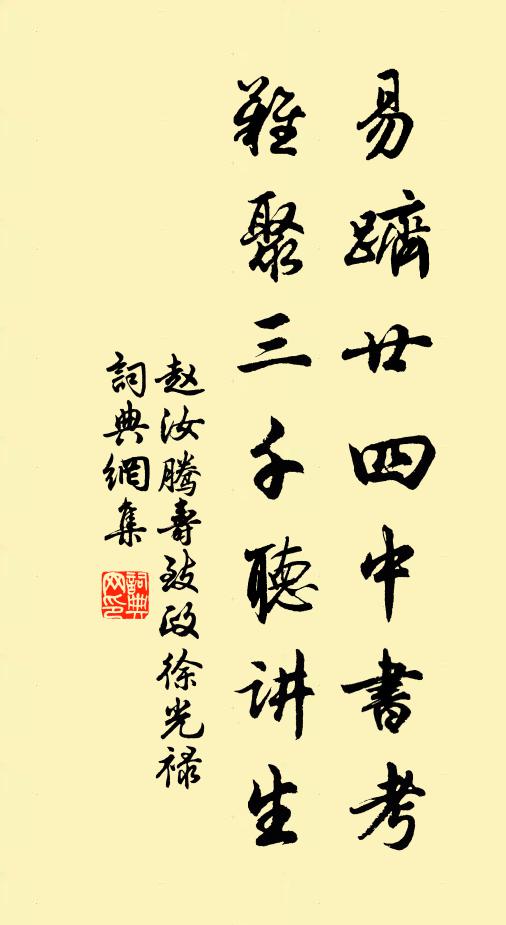 易躋廿四中書考
難聚三千聽讲生
赵汝騰壽致政徐光禄
詞典網集
詞典網印